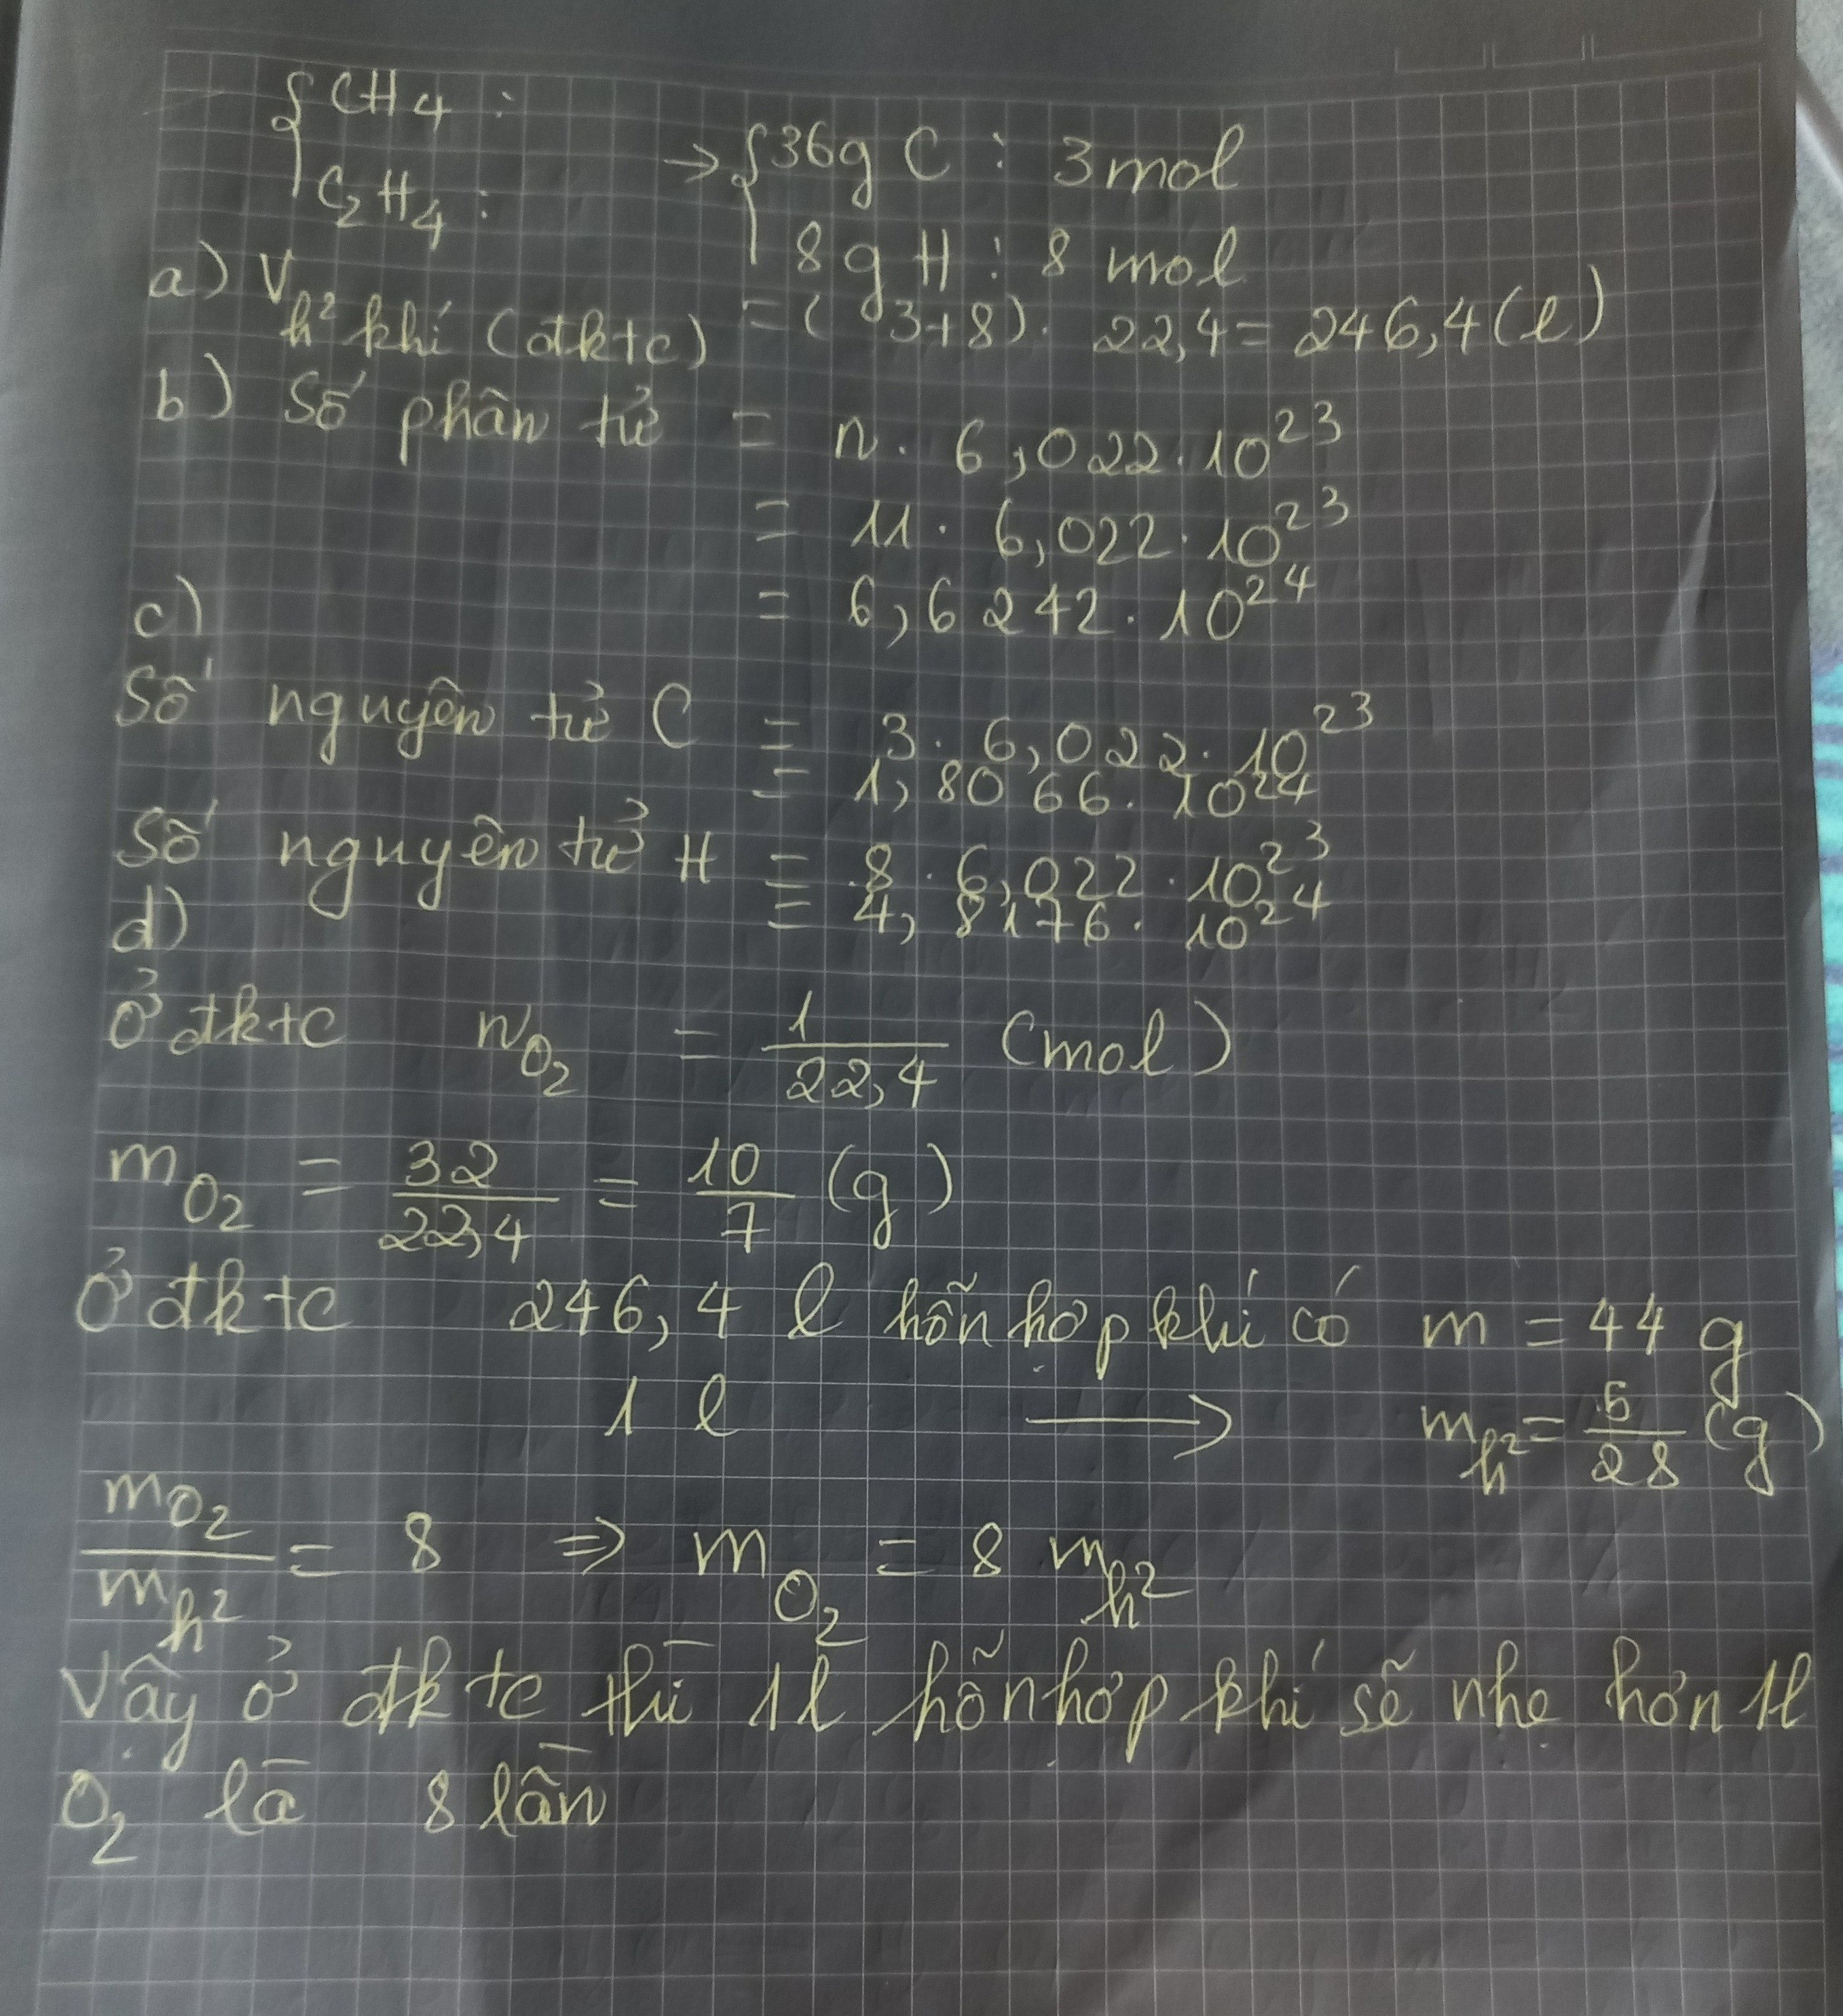 { CH4 :
→ { 36g C : 3 mol
C2H4 :
8g H : 8 mol
a) V h² khí (đktc) = (3+8). 22,4 = 246,4 (l)
b) Số phân tử = n. 6,022.10^23
= 11. 6,022.10^23
= 6,6242.10^24
c)
Số nguyên tử C = 3. 6,022.10^23
= 1,8066.10^24
Số nguyên tử H = 8. 6,022.10^23
= 4,8176.10^24
d)
Ở đktc nO2 = 1/22,4 (mol)
mO2 = 32/22,4 = 10/7 (g)
Ở đktc 246,4 l hỗn hợp khí có m = 44 g
1 l → m h² = 5/28 (g)
mO2/m h² = 8 ⇒ mO2 = 8 m h²
Vậy ở đktc thì 1l hỗn hợp khí sẽ nhẹ hơn 1l
O2 là 8 lần